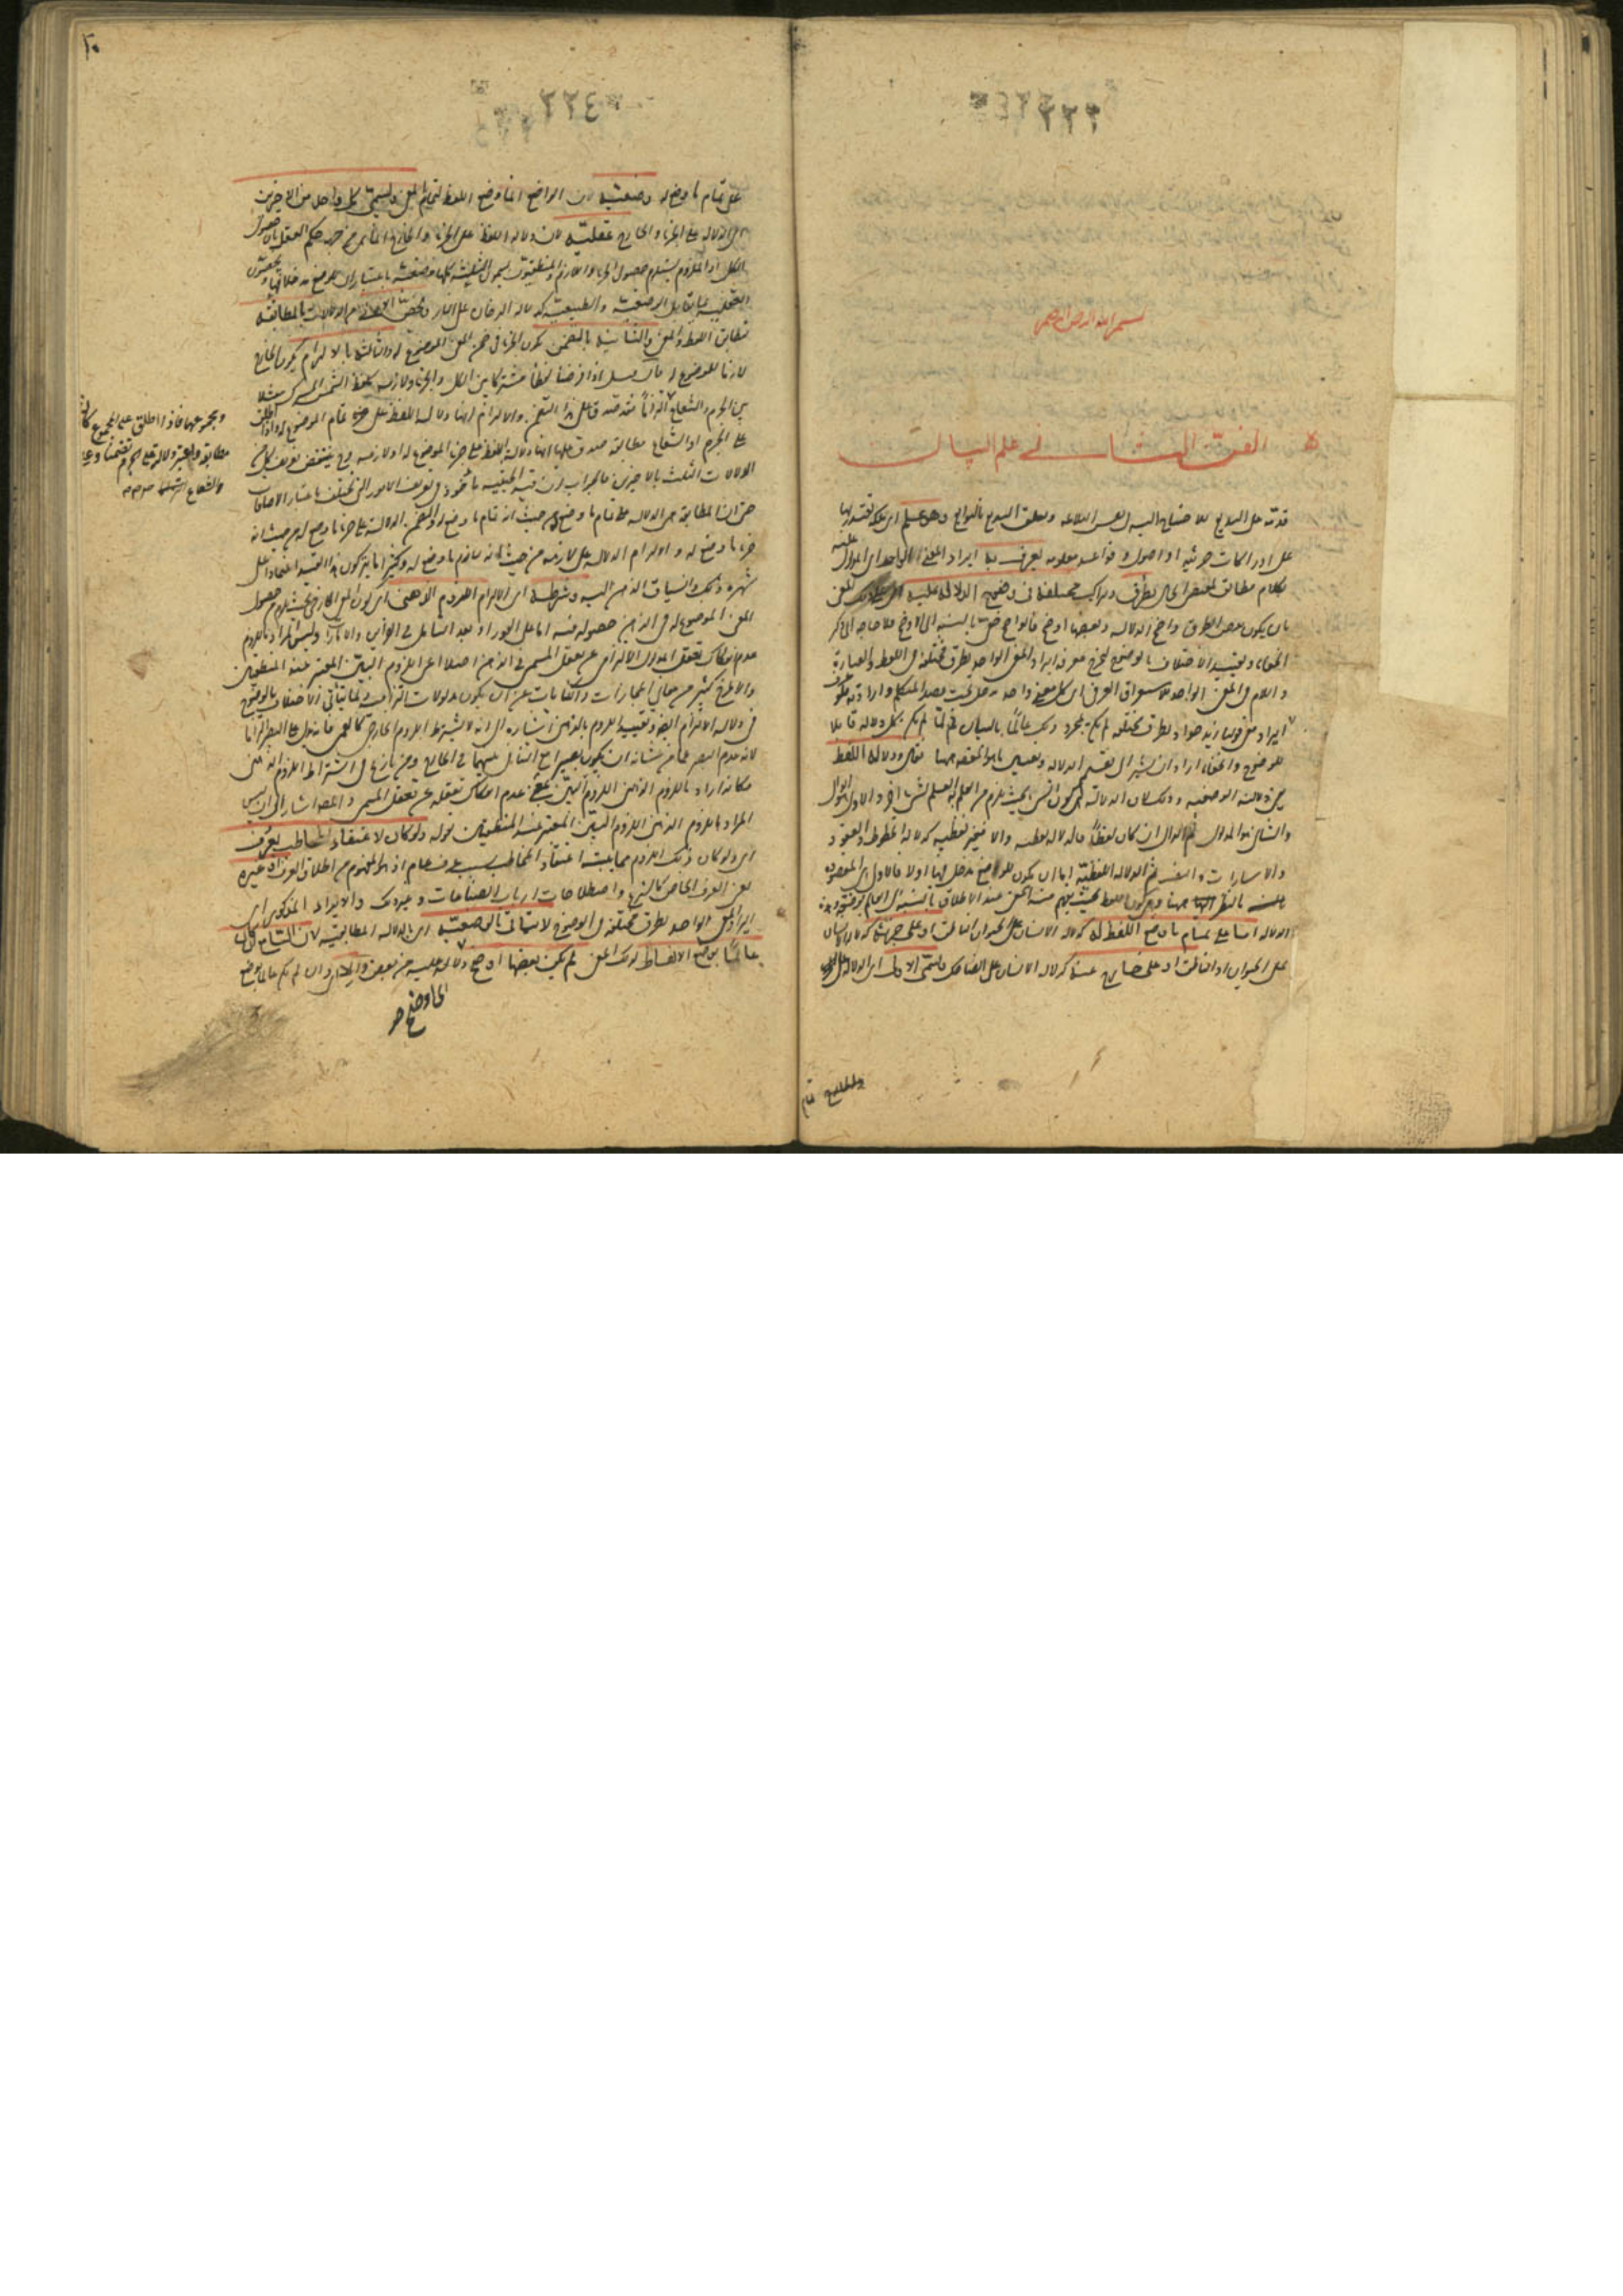 ٢٢٢
بسم الله الرحمن الرحيم
الفن الثانى فى علم البيان
قدمه على البديع للاحتياج اليه فى نفس البلاغة وتعلق البديع بالتوابع وهو علم اى ملكة يقتدر بها
على ادراكات جزئية او اصول وقواعد معلومة يعرف به ايراد المعنى الواحد اى المدلول عليه
بكلام مطابق لمقتضى الحال بطرق وتراكيب مختلفة فى وضوح الدلالة عليه اى على ذلك المعنى
بان يكون بعض الطرق واضح الدلالة وبعضها اوضح فالواضح خفى بالنسبة الى الاوضح فلا حاجة الى ذكر
الخفاء وتقييد الاختلاف بالوضوح ليخرج معرفة ايراد المعنى الواحد بطرق مختلفة فى اللفظ والعبارة
واللام فى المعنى الواحد للاستغراق العرفى اى كل معنى واحد يدخل تحت قصد المتكلم وارادته فلو عرف
ايراد معنى قولنا زيد جواد بطرق مختلفة لم يكن بمجرد ذلك عالما بالبيان ثم لما لم يكن كل دلالة قابلا
للوضوح والخفاء اراد ان يشير الى تقسيم الدلالة وتعيين ما هو المقصود ههنا فقال ودلالة اللفظ
يعنى دلالته الوضعية وذلك لان الدلالة هى كون الشىء بحيث يلزم من العلم به العلم بشىء اخر والاول الدال
والثانى المدلول ثم الدال ان كان لفظا فالدلالة لفظية والا فغير لفظية كدلالة الخطوط والعقود
والاشارات والنصب ثم الدلالة اللفظية اما ان يكون للوضع مدخل فيها اولا فالاول هى المقصودة
بالنظر ههنا وهى كون اللفظ بحيث يفهم منه المعنى عند الاطلاق بالنسبة الى العالم بوضعه وهذه
الدلالة اما على تمام ما وضع اللفظ له كدلالة الانسان على الحيوان الناطق او على جزئه كدلالة الانسان
على الحيوان او الناطق او على خارج عنه كدلالة الانسان على الضاحك وتسمى الاولى اى الدلالة
على تمام ما وضع له وضعية لان الواضع انما وضع اللفظ لتمام المعنى وتسمى كل واحد من الاخيرين
اى الدلالة على الجزء والخارج عقلية لان دلالة اللفظ على الجزء والخارج انما هى من جهة حكم العقل بان حصول
الكل او الملزوم يستلزم حصول الجزء او اللازم والمنطقيون يسمون الثلثة كلها وضعية باعتبار ان للوضع مدخلا فيها ويخصون
العقلية بما يقابل الوضعية والطبيعية كدلالة الدخان على النار وتختص الاولى من الدلالات بالمطابقة
لتطابق اللفظ والمعنى والثانية بالتضمن لكون الجزء فى ضمن المعنى الموضوع له والثالثة بالالتزام لكون الخارج
لازما للموضوع له فان قيل اذا فرضنا لفظا مشتركا بين الكل والجزء ولازمه كلفظ الشمس المشترك مثلا
بين الجرم والشعاع
على الجرم او الشعاع مطابقة صدق عليها انها دلالة اللفظ على جزء الموضوع له او لازمه وح ينتقض تعريف كل من
الدلالات الثلث بالاخريين فالجواب ان قيد الحيثية ماخوذ فى تعريف الامور التى تختلف باعتبار الاضافات
حتى ان المطابقة هى الدلالة على تمام ما وضع له من حيث انه تمام ما وضع له والتضمن الدلالة على جزء ما وضع له من حيث انه
جزء ما وضع له والالتزام الدلالة على لازمه من حيث انه لازم ما وضع له وكثيرا ما يتركون هذا القيد اعتمادا على
شهرة ذلك وانسياق الذهن اليه وشرطه اى الالتزام اللزوم الذهنى اى كون المعنى الخارجى بحيث يلزم من حصول
المعنى الموضوع له فى الذهن حصوله فيه اما على الفور او بعد التامل فى القرائن والامارات وليس المراد باللزوم
عدم انفكاك تعقل المدلول الالتزامى عن تعقل المسمى فى الذهن اصلا اعنى اللزوم البين المعتبر عند المنطقيين
والا لخرج كثير من معانى المجازات والكنايات عن ان يكون مدلولات التزامية ولما يتاتى الاختلاف بالوضوح
فى دلالة الالتزام ايضا وتقييد اللزوم بالذهنى اشارة الى انه لا يشترط اللزوم الخارجى كالعمى فانه يدل على البصر التزاما
لانه عدم البصر عما من شانه ان يكون بصيرا مع التنافى بينهما فى الخارج ومن نازع فى اشتراط اللزوم الذهنى
فكانه اراد باللزوم الذهنى اللزوم البين بمعنى عدم انفكاك تعقله عن تعقل المسمى والمصنف اشار الى انه ليس
المراد باللزوم الذهنى اللزوم البين المعتبر عند المنطقيين بقوله ولو كان لاعتقاد المخاطب بعرف
اى ولو كان ذلك اللزوم مما يثبته اعتقاد المخاطب بسبب عرف عام اذ هو المفهوم من اطلاق العرف او غيره
يعنى العرف الخاص كالشرع واصطلاحات ارباب الصناعات وغير ذلك والايراد المذكور اى
ايراد المعنى الواحد بطرق مختلفة فى الوضوح لا يتاتى بالوضعية اى بالدلالة المطابقية لان السامع ان كان
عالما بوضع الالفاظ لذلك المعنى لم يكن بعضها اوضح دلالة عليه من بعض والا اى وان لم يكن عالما بوضع
ومجموعهما فاذا اطلق على المجموع كان
مطابقة واعتبر دلالته على الجرم تضمنا وعلى
والشعاع التزاما